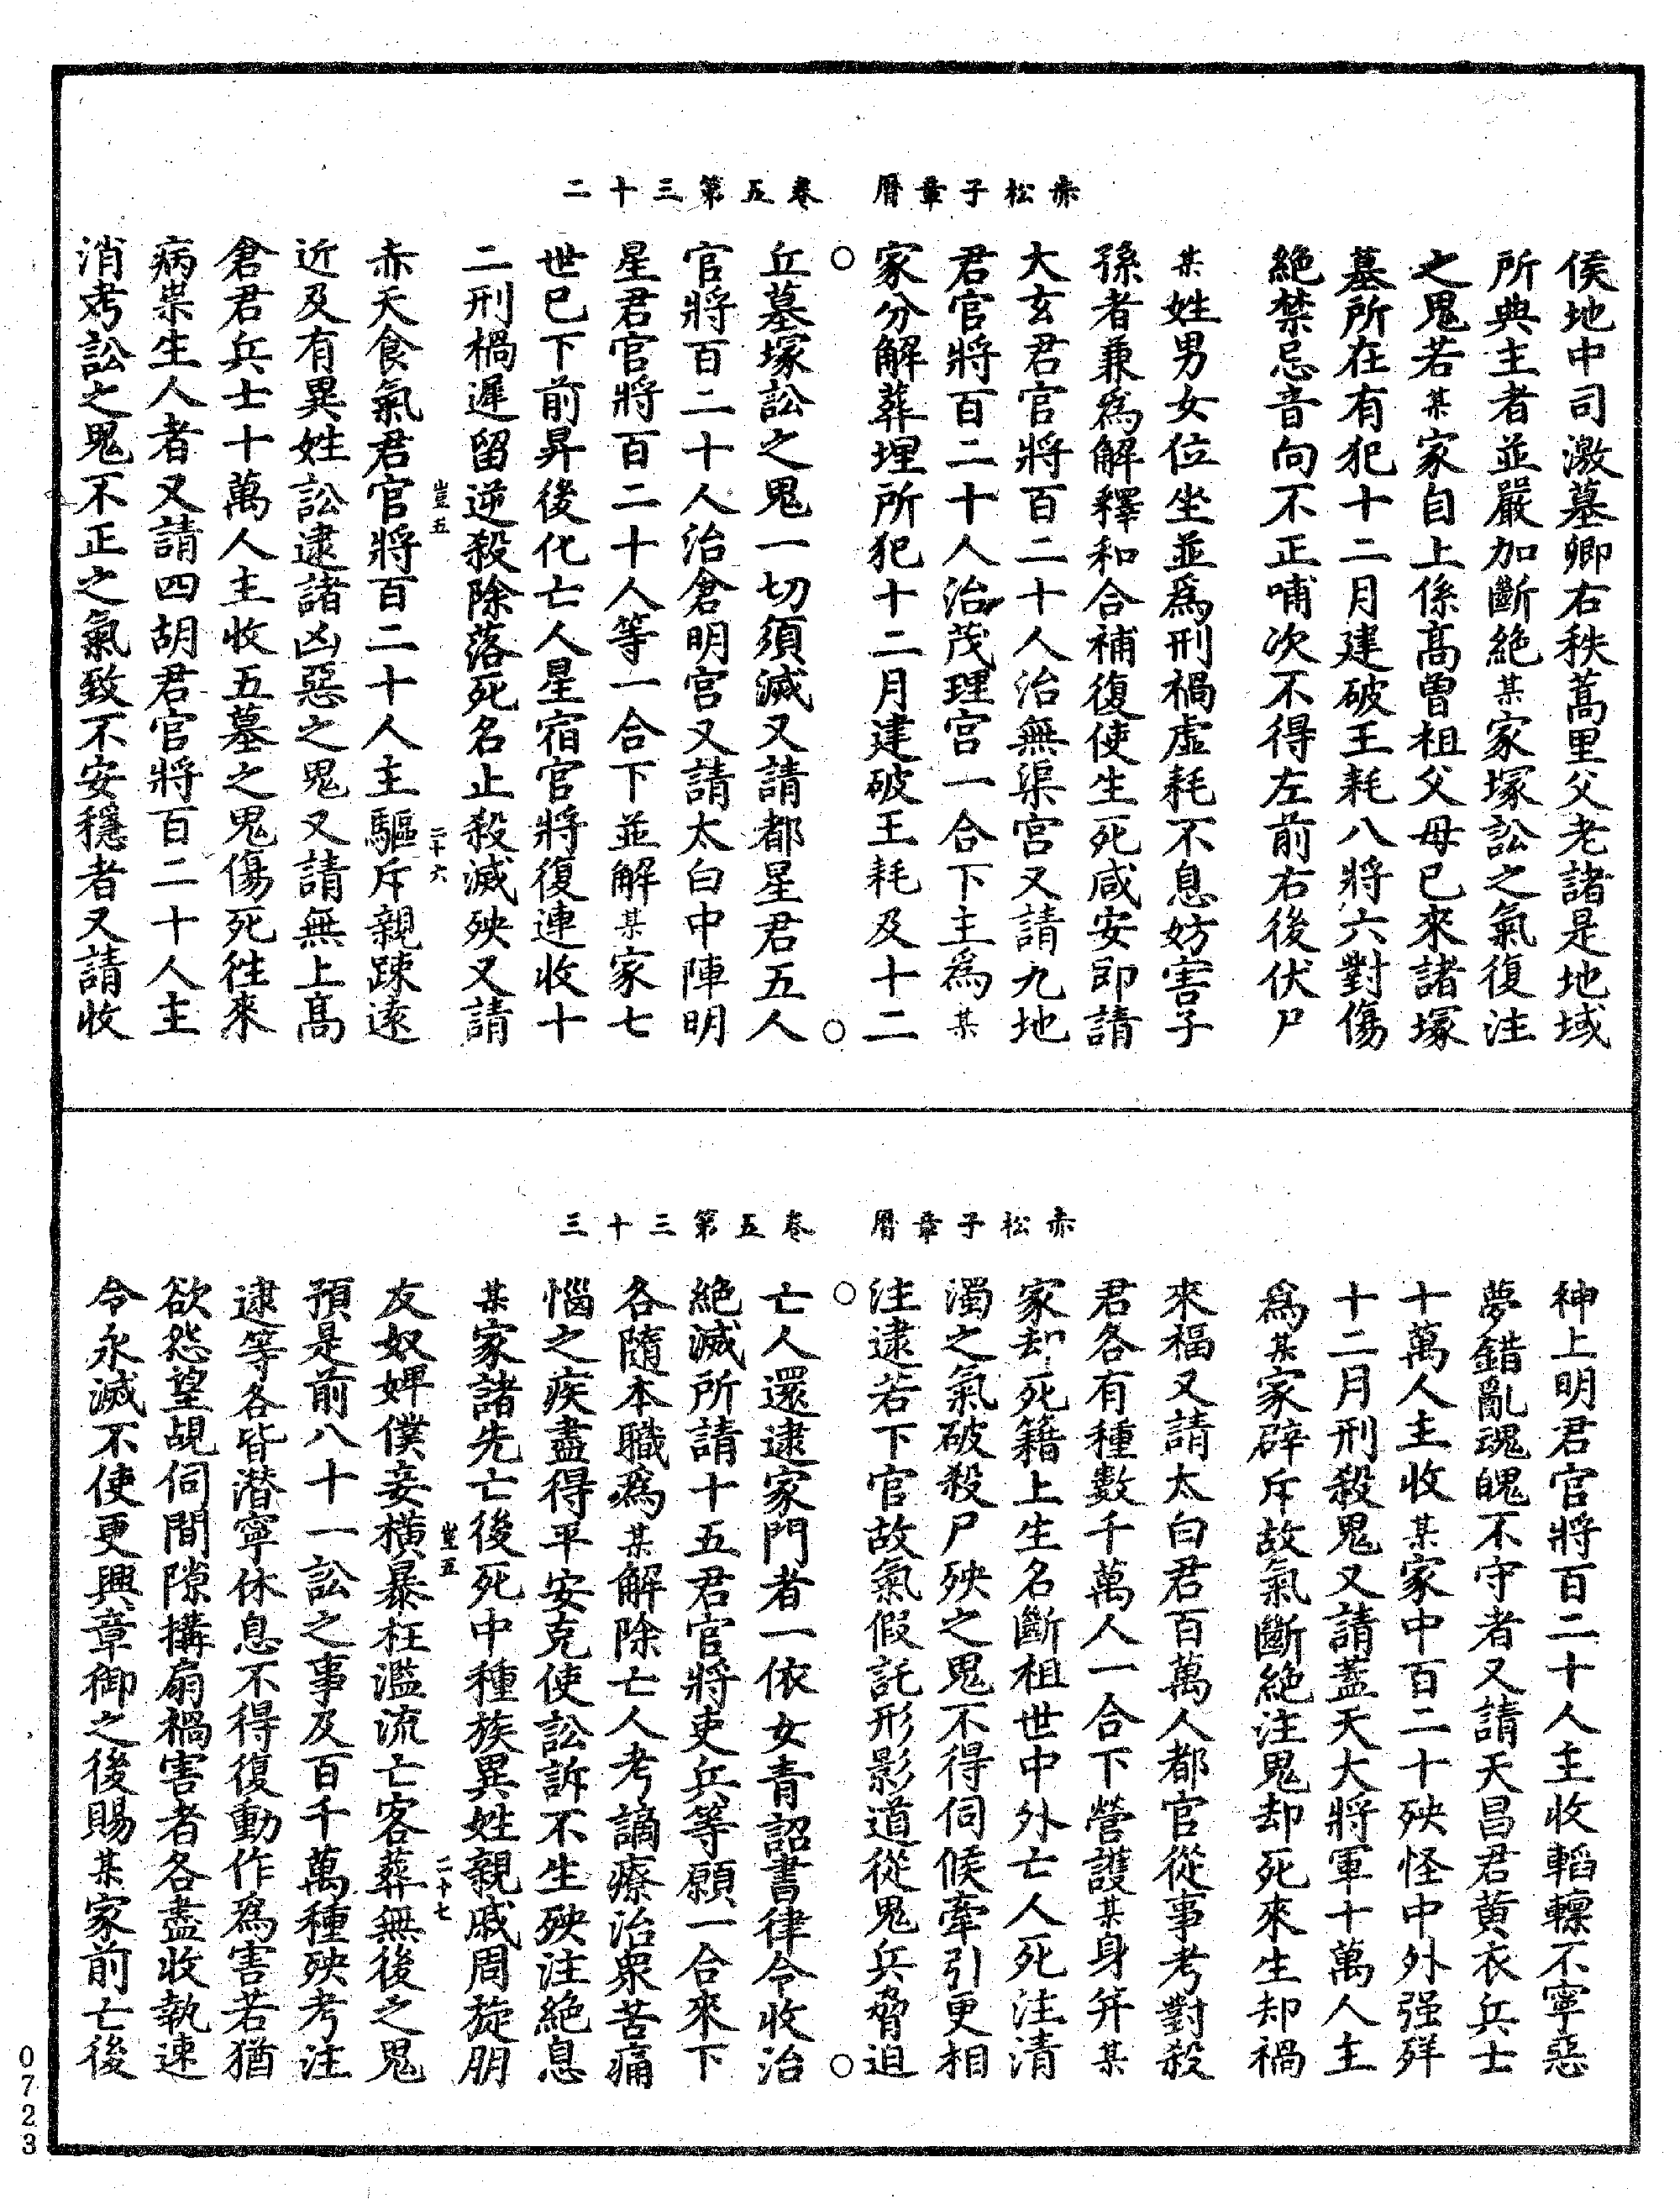 赤松子章曆　卷五第三十二
侯地中司激墓卿右秩蒿里父老諸是地域
所典主者並嚴加斷絕某家塚訟之氣復注
之鬼若某家自上係高曾祖父母已來諸塚
墓所在有犯十二月建破王耗八將六對傷
絕禁忌音向不正哺次不得左前右後伏尸
某姓男女位坐並爲刑禍虛耗不息妨害子
孫者兼爲解釋和合補復使生死咸安即請
大玄君官將百二十人治無渠宮又請九地
君官將百二十人治茂理宮一合下主爲某
家分解葬埋所犯十二月建破王耗及十二
丘墓塚訟之鬼一切須滅又請都星君五人
官將百二十人治倉明宮又請太白中陣明
星君官將百二十人等一合下並解某家七
世已下前昇後化亡人星宿官將復連收十
二刑禍遲留逆殺除落死名止殺滅殃又請
豈五　二十六
赤天食氣君官將百二十人主驅斥親踈遠
近及有異姓訟逮諸凶惡之鬼又請無上高
倉君兵士十萬人主收五墓之鬼傷死往來
病祟生人者又請四胡君官將百二十人主
消考訟之鬼不正之氣致不安穩者又請收
赤松子章曆　卷五第三十三
神上明君官將百二十人主收轁轢不寧惡
夢錯亂魂魄不守者又請天昌君黃衣兵士
十萬人主收某家中百二十殃怪中外强殍
十二月刑殺鬼又請蓋天大將軍十萬人主
爲某家辟斥故氣斷絕注鬼却死來生却禍
來福又請太白君百萬人都官從事考對殺
君各有種數千萬人一合下營護某身并某
家却死籍上生名斷祖世中外亡人死注清
濁之氣破殺尸殃之鬼不得伺候牽引更相
注逮若下官故氣假託形影道從鬼兵脅迫
亡人還逮家門者一依女青詔書律令收治
絕滅所請十五君官將吏兵等願一合來下
各隨本職爲某解除亡人考謫療治衆苦痛
惱之疾盡得平安克使訟訴不生殃注絕息
某家諸先亡後死中種族異姓親戚周旋朋
豈五　二十七
友奴婢僕妾橫暴枉濫流亡客葬無後之鬼
預是前八十一訟之事及百千萬種殃考注
逮等各皆潜寧休息不得復動作爲害若猶
欲怨望覘伺間隙搆扇禍害者各盡收執速
令永滅不使更興章御之後賜某家前亡後
0723